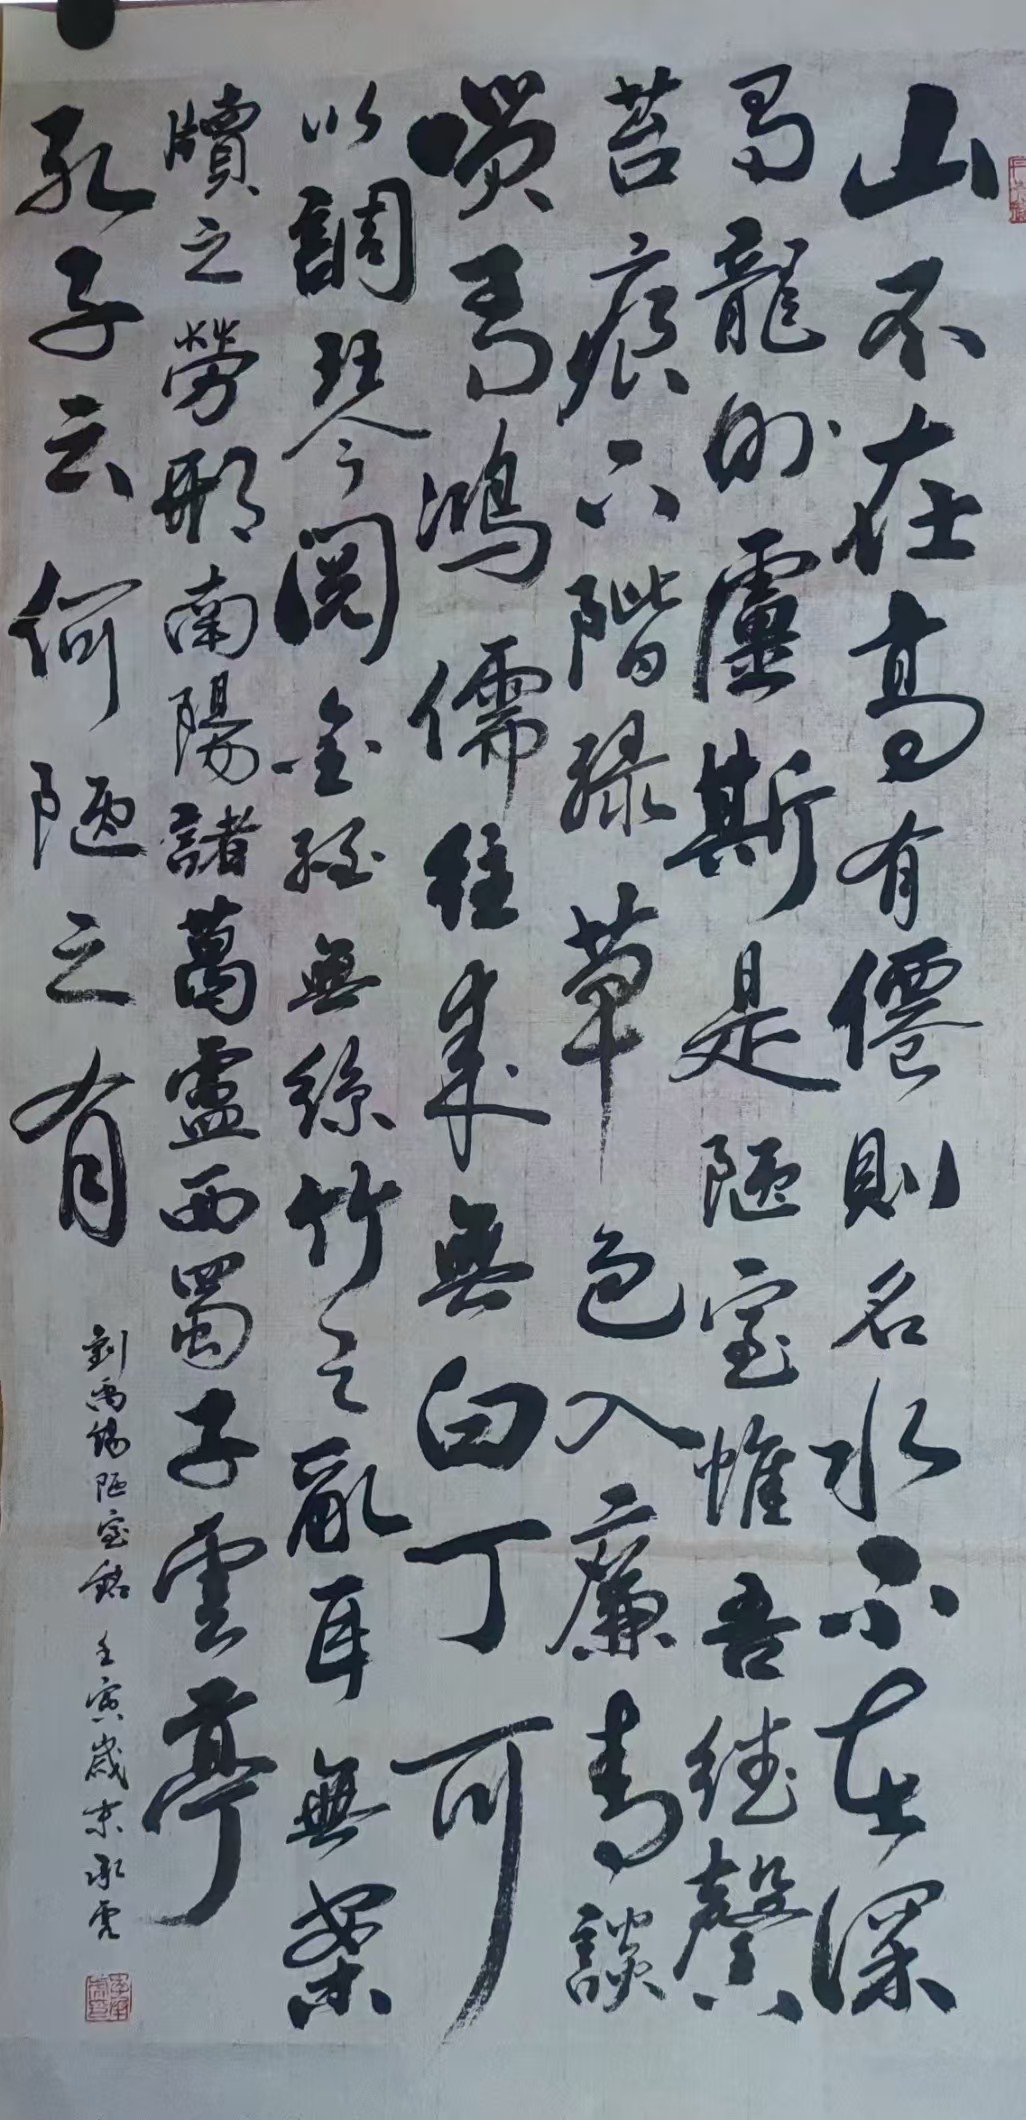 山不在高有僊則名水不在深
有龍則靈斯是陋室惟吾德馨
苔痕上階緑草色入廉青談
有鴻儒往來無白丁可
以調琴閱金經無絲竹之亂耳無案
牘之勞形南陽諸葛廬西蜀子雲亭
孔子云何陋之有
劉禹錫陋室銘 壬寅歲末承虎